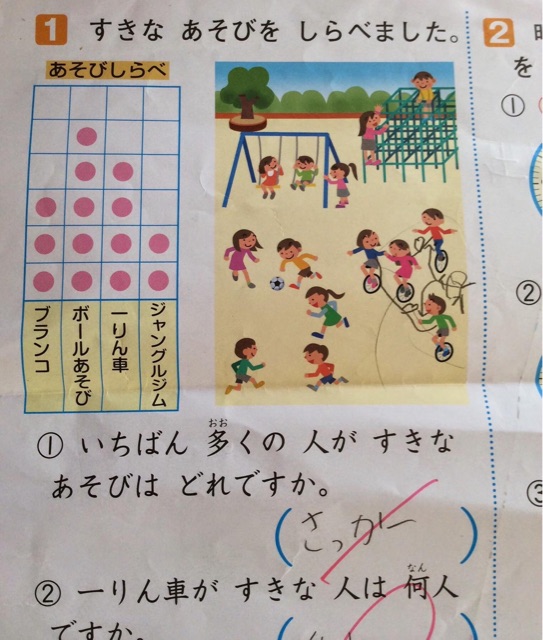 1 すきな あそびを しらべました。
あそびしらべ
ブランコ
ボールあそび
一りん車
ジャングルジム
① いちばん 多くの 人が すきな
おお
あそびは どれですか。
(さっかー)
② 一りん車が すきな 人は 何人
なん
ですか。
2
を
①
②
③